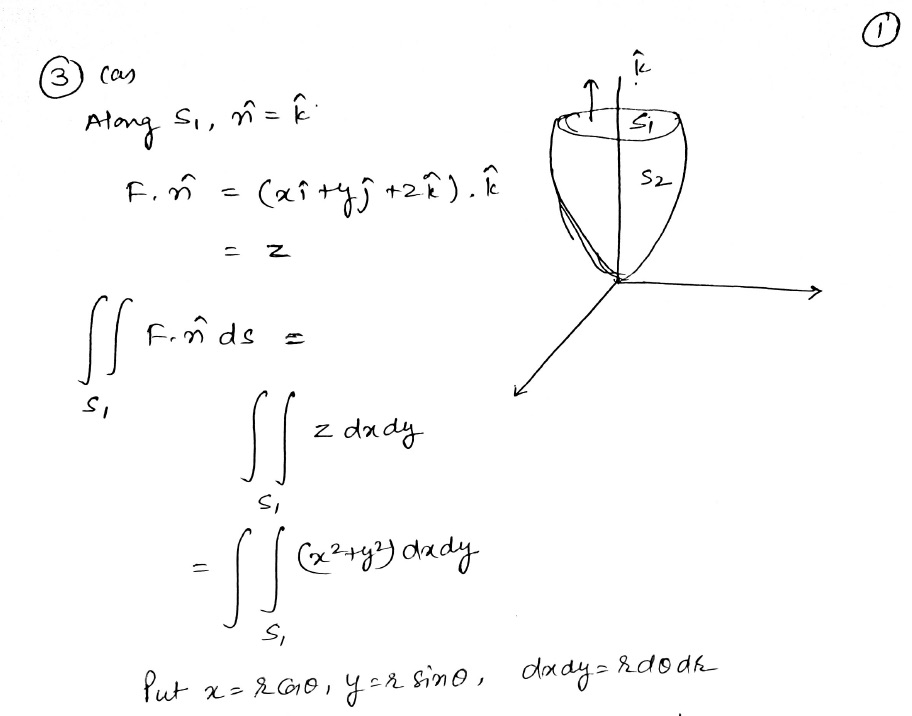 ①
③ (a)
Along S₁, n̂ = k̂
F. n̂ = (xî + yĵ + zk̂). k̂
= z
∬ F. n̂ ds =
S₁
∬ z dxdy
S₁
= ∬ (x²+y²) dxdy
S₁
Put x = r cosθ, y = r sinθ, dxdy = rdθdr
k̂
S₁
S₂